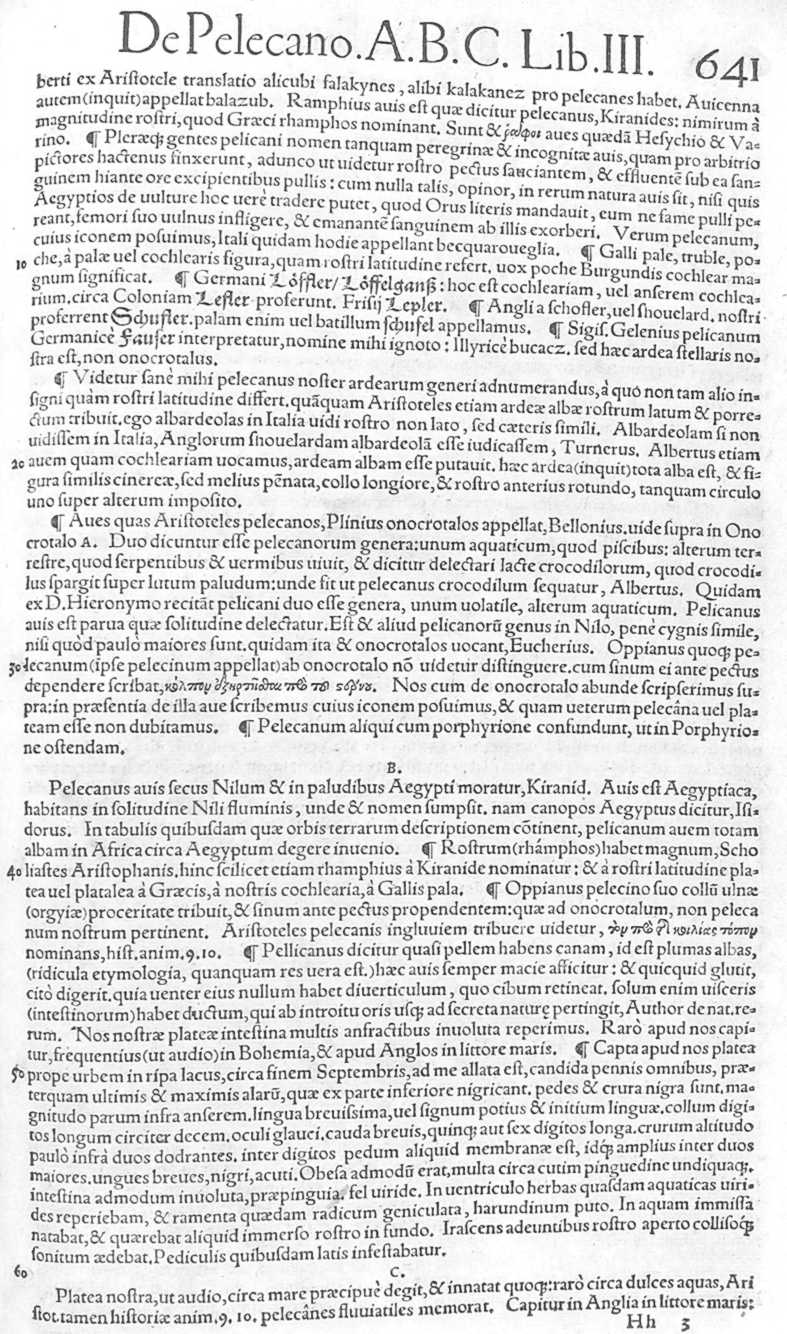 De Pelecano. A. B. C. Lib. III. 641
berti ex Aristotele translatio alicubi falakynes, alibi kalakanez pro pelecanes habet. Auicenna
autem (inquit) appellat balazub. Ramphius auis est quæ dicitur pelecanus, Kiranides: nimirum à
magnitudine rostri, quod Græci rhamphos nominant. Sunt & ῥάμφοι aues quædã Hesychio & Va-
rino. ¶ Pleræq; gentes pelicani nomen tanquam peregrinæ & incognitæ auis, quam pro arbitrio
pictores hactenus finxerunt, adunco ut uidetur rostro pectus sauciantem, & effluentē sub ea san-
guinem hiante ore excipientibus pullis: cum nulla talis, opinor, in rerum natura auis sit, nisi quis
Aegyptios de uulture hoc uerè tradere putet, quod Orus literis mandauit, eum ne fame pulli pe-
reant, femori suo uulnus infligere, & emanantē sanguinem ab illis exorberi. Verum pelecanum,
cuius iconem posuimus, Itali quidam hodie appellant becquaroueglia. ¶ Galli pale, truble, po-
10 che, à palæ uel cochlearis figura, quam rostri latitudine refert. uox poche Burgundis cochlear ma-
gnum significat. ¶ Germani Löffler/ Löffelganß: hoc est cochleariam, uel anserem cochlea-
rium. circa Coloniam Lefler proferunt. Frisij Lepler. ¶ Angli a schofler, uel shouelard. nostri
proferrent Schufler. palam enim uel batillum schufel appellamus. ¶ Sigis. Gelenius pelicanum
Germanicè Fauser interpretatur, nomine mihi ignoto: Illyricè bucacz. sed hæc ardea stellaris no-
stra est, non onocrotalus.
¶ Videtur sanè mihi pelecanus noster ardearum generi adnumerandus, à quo non tam alio in-
signi quàm rostri latitudine differt. quãquam Aristoteles etiam ardeæ albæ rostrum latum & porre-
ctum tribuit. ego albardeolas in Italia uidi rostro non lato, sed cæteris simili. Albardeolam si non
uidissem in Italia, Anglorum shouelardam albardeolã esse iudicassem, Turnerus. Albertus etiam
20 auem quam cochleariam uocamus, ardeam albam esse putauit. hæc ardea (inquit) tota alba est, & fi-
gura similis cinereæ, sed melius pēnata, collo longiore, & rostro anterius rotundo, tanquam circulo
uno super alterum imposito.
¶ Aues quas Aristoteles pelecanos, Plinius onocrotalos appellat, Bellonius. uide supra in Ono
crotalo A. Duo dicuntur esse pelecanorum genera: unum aquaticum, quod piscibus: alterum ter-
restre, quod serpentibus & uermibus uiuit, & dicitur delectari lacte crocodilorum, quod crocodi-
lus spargit super lutum paludum: unde fit ut pelecanus crocodilum sequatur, Albertus. Quidam
ex D. Hieronymo recitãt pelicani duo esse genera, unum uolatile, alterum aquaticum. Pelicanus
auis est parua quæ solitudine delectatur. Est & aliud pelicanorũ genus in Nilo, penè cygnis simile,
nisi quòd paulò maiores sunt. quidam ita & onocrotalos uocant, Eucherius. Oppianus quoq; pe-
30 lecanum (ipse pelecinum appellat) ab onocrotalo nõ uidetur distinguere. cum sinum ei ante pectus
dependere scribat, κόλπον ἐξηρτῆσθαι πρὸ τοῦ στέρνου. Nos cum de onocrotalo abunde scripserimus su-
pra: in præsentia de illa aue scribemus cuius iconem posuimus, & quam ueterum pelecâna uel pla-
team esse non dubitamus. ¶ Pelecanum aliqui cum porphyrione confundunt, ut in Porphyrio-
ne ostendam.
B.
Pelecanus auis secus Nilum & in paludibus Aegypti moratur, Kiranid. Auis est Aegyptiaca,
habitans in solitudine Nili fluminis, unde & nomen sumpsit. nam canopos Aegyptus dicitur, Isi-
dorus. In tabulis quibusdam quæ orbis terrarum descriptionem cõtinent, pelicanum auem totam
albam in Africa circa Aegyptum degere inuenio. ¶ Rostrum (rhámphos) habet magnum, Scho
40 liastes Aristophanis. hinc scilicet etiam rhamphius à Kiranide nominatur: & à rostri latitudine pla-
tea uel platalea à Græcis, à nostris cochlearia, à Gallis pala. ¶ Oppianus pelecino suo collũ ulnæ
(orgyiæ) proceritate tribuit, & sinum ante pectus propendentem: quæ ad onocrotalum, non peleca
num nostrum pertinent. Aristoteles pelecanis ingluuiem tribuere uidetur, τὸν πρὸ τῆς κοιλίας τόπον
nominans, hist. anim. 9. 10. ¶ Pellicanus dicitur quasi pellem habens canam, id est plumas albas,
(ridicula etymologia, quanquam res uera est.) hæc auis semper macie afficitur: & quicquid glutit,
citò digerit. quia uenter eius nullum habet diuerticulum, quo cibum retineat. solum enim uisceris
(intestinorum) habet ductum, qui ab introitu oris usq; ad secreta naturę pertingit, Author de nat. re-
rum. Nos nostræ plateæ intestina multis anfractibus inuoluta reperimus. Rarò apud nos capi-
tur, frequentius (ut audio) in Bohemia, & apud Anglos in littore maris. ¶ Capta apud nos platea
50 prope urbem in ripa lacus, circa finem Septembris, ad me allata est, candida pennis omnibus, præ-
terquam ultimis & maximis alarũ, quæ ex parte inferiore nigricant. pedes & crura nigra sunt. ma-
gnitudo parum infra anserem. lingua breuissima, uel signum potius & initium linguæ. collum digi-
tos longum circiter decem. oculi glauci. cauda breuis, quinq; aut sex digitos longa. crurum altitudo
paulò infrà duos dodrantes. inter digitos pedum aliquid membranæ est, idq; amplius inter duos
maiores. ungues breues, nigri, acuti. Obesa admodũ erat, multa circa cutim pinguedine undiquaq;.
intestina admodum inuoluta, præpinguia. fel uiride. In uentriculo herbas quasdam aquaticas uiri-
des reperiebam, & ramenta quædam radicum geniculata, harundinum puto. In aquam immissa
natabat, & quærebat aliquid immerso rostro in fundo. Irascens adeuntibus rostro aperto collisoq;
sonitum ædebat. Pediculis quibusdam latis infestabatur.
60 C.
Platea nostra, ut audio, circa mare præcipuè degit, & innatat quoq;: rarò circa dulces aquas, Ari
stot. tamen historiæ anim. 9. 10. pelecânes fluuiatiles memorat. Capitur in Anglia in littore maris:
Hh 3